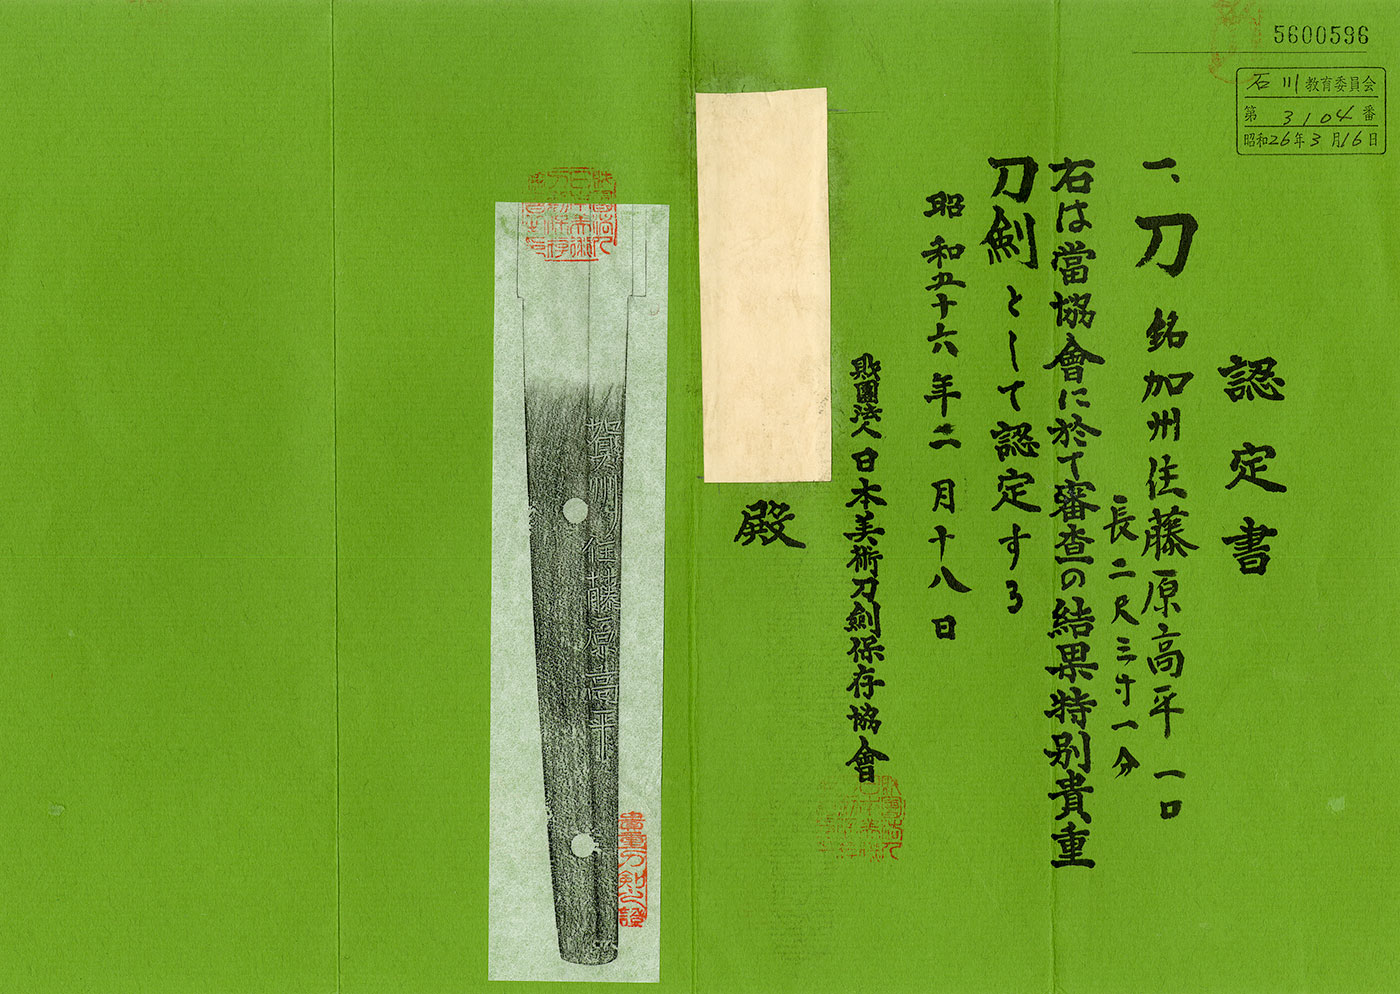 5600596
石川教育委員会
第 3104 番
昭和26年3月16日
認定書
一、刀 銘 加州住藤原高平 一口
長二尺三寸一分
右は當協會に於て審査の結果特別貴重
刀剣として認定する
昭和五十六年二月十八日
財團法人日本美術刀劍保存協會
殿
賀州住藤原高平
貴重刀剣之證